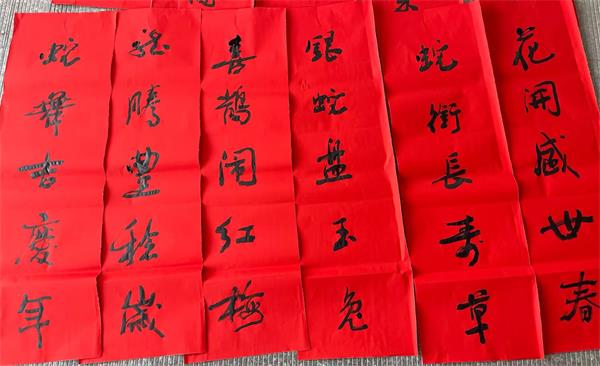 花開盛世春
蛇銜長壽草
銀蛇盤玉兔
喜鵲闹红梅
龍騰豐稔歲
蛇舞吉慶年